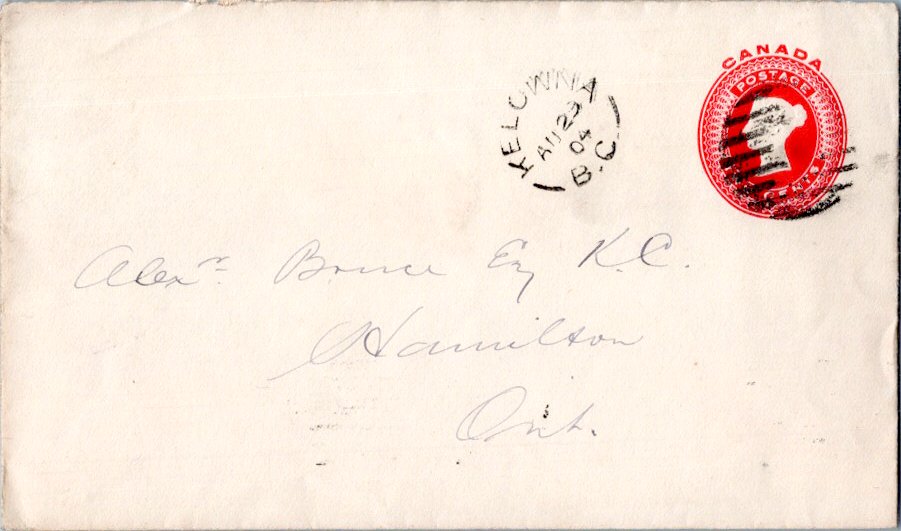 CANADA
POSTAGE
CENTS
KELOWNA
AU 29
04
B.C.
Alexr. Bruce Esq K.C.
Hamilton
Ont.